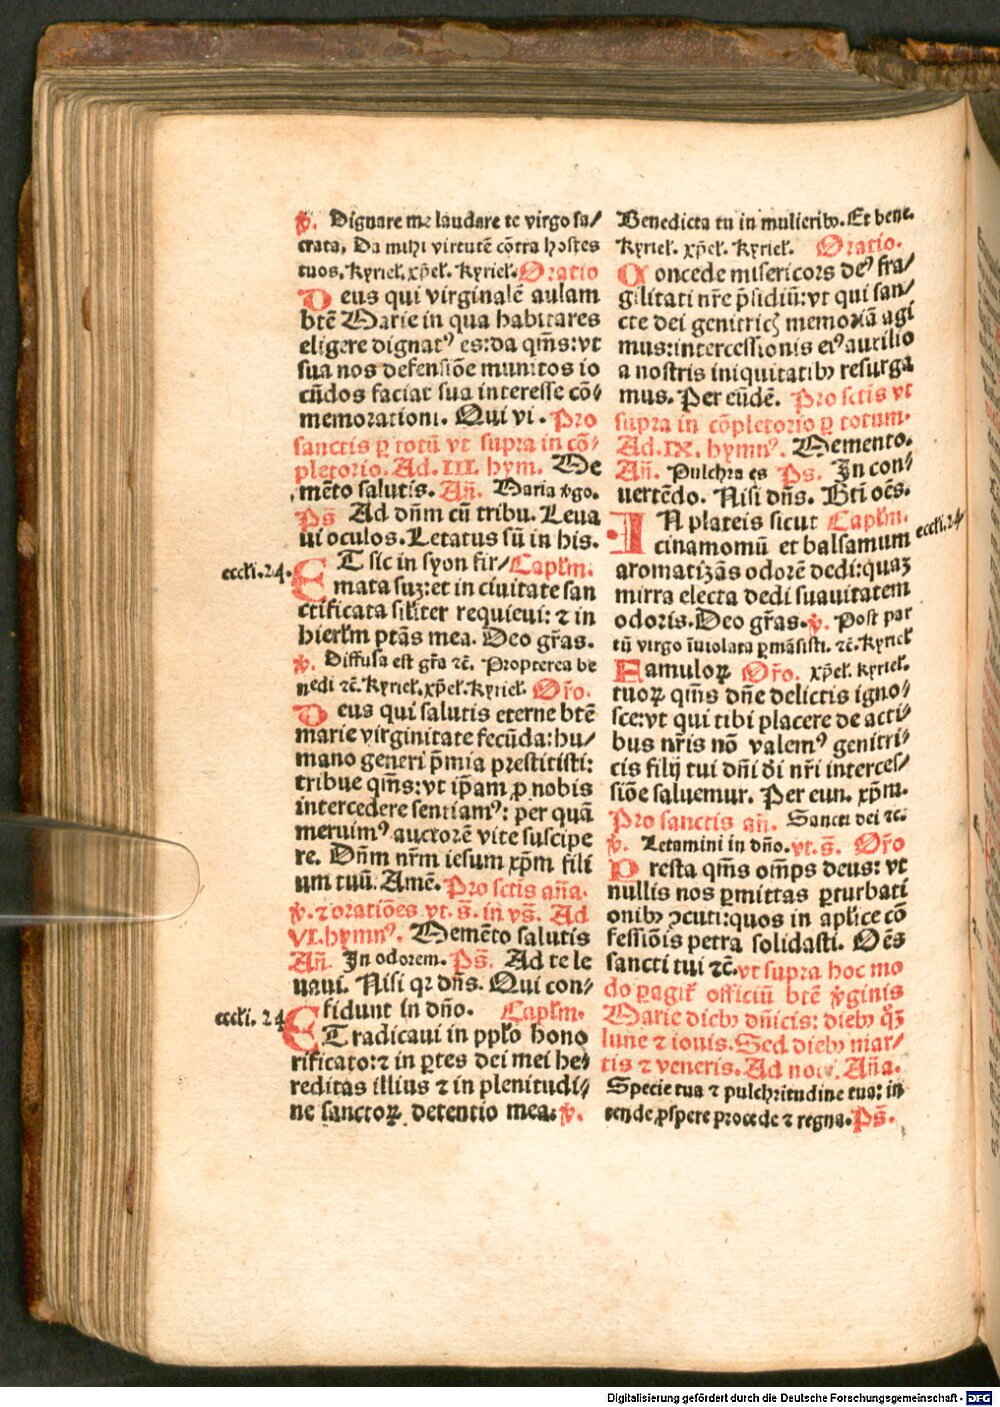 ℣. Dignare me laudare te virgo sa/
crata. Da mihi virtutē cōtra hostes
tuos. Kyriel̄. xp̄el̄. Kyriel̄. Oratio
Deus qui virginalē aulam
btē Marie in qua habitares
eligere dignatꝰ es: da qm̄s: vt
sua nos defensiōe munitos io
cūdos faciat sua interesse cō-
memorationi. Qui vi. Pro
sanctis ꝑ totū vt supra in cō-
pletorio. Ad. III. hym. Me
mēto salutis. Añ. Maria v̄go.
Ps̄ Ad dn̄m cū tribu. Leua
ui oculos. Letatus sū in his.
ET sic in syon fir/ Capl̄m.
eccl̄i. 24.
mata suꝫ: et in ciuitate san
ctificata sil̄iter requieui: ⁊ in
hierl̄m ptās mea. Deo gr̄as.
℣. Diffusa est gr̄a ⁊c̄. Propterea be
nedi ⁊c̄. Kyriel̄. xp̄el̄. Kyriel̄. Or̄o.
Deus qui salutis eterne btē
marie virginitate fecūda: hu/
mano generi p̄mia prestitisti:
tribue qm̄s: vt ip̄am ꝓ nobis
intercedere sentiamꝰ: per quā
meruimꝰ auctorē vite suscipe
re. Dn̄m nr̄m iesum xp̄m fili
um tuū. Amē. Pro sctis aña.
℣. ⁊ oratiōes vt. s̄. in vs̄. Ad
VI. hymnꝰ. Memēto salutis
Añ. In odorem. Ps̄. Ad te le
uaui. Nisi qꝛ dn̄s. Qui con-
fidunt in dn̄o. Capl̄m.
eccl̄i. 24
ET radicaui in ppl̄o hono
rificato: ⁊ in ꝑtes dei mei he-
reditas illius ⁊ in plenitudi-
ne sanctoꝝ detentio mea. ℣.
Benedicta tu in mulieribꝰ. Et bene.
Kyriel̄. xp̄el̄. Kyriel̄. Oratio.
Concede misericors deꝰ fra/
gilitati nr̄e p̄sidiū: vt qui san/
cte dei genitricꝭ memoriā agi
mus: intercessionis eiꝰ auxilio
a nostris iniquitatibꝰ resurga
mus. Per eūdē. Pro sctis vt
supra in cōpletorio ꝑ totum.
Ad. IX. hymnꝰ. Memento.
Añ. Pulchra es Ps. In con-
uertēdo. Nisi dn̄s. Bti oēs.
IN plateis sicut Capl̄m.
eccl̄i. 24
cinamomū et balsamum
aromatizās odorē dedi: quaꝫ
mirra electa dedi suauitatem
odoris. Deo gr̄as. ℣. Post par
tū virgo īuiolata ꝑmāsisti. ⁊c̄. Kyriel̄
Famuloꝝ Or̄o. xp̄el̄. kyriel̄.
tuoꝝ qm̄s dn̄e delictis igno-
sce: vt qui tibi placere de acti-
bus nr̄is nō valemꝰ genitri-
cis filij tui dn̄i d̄i nr̄i interces/
siōe saluemur. Per eun. xp̄m.
Pro sanctis añ. Sancti dei ⁊c.
℣. Letamini in dn̄o. vt. s̄. Or̄o
Presta qm̄s om̄ps deus: vt
nullis nos ꝑmittas ꝑturbati
onibꝰ ↄcuti: quos in apl̄ice cō
fessiōis petra solidasti. Oēs
sancti tui ⁊c̄. vt supra hoc mo
do ꝑagit̄ officiū btē v̄ginis
Marie diebꝰ dn̄icis: diebꝰ qꝫ
lune ⁊ iouis. Sed diebꝰ mar/
tis ⁊ veneris. Ad noct. Aña.
Specie tua ⁊ pulchritudine tua: in
tende ꝓspere procede ⁊ regna. Ps̄.
Digitalisierung gefördert durch die Deutsche Forschungsgemeinschaft - DFG